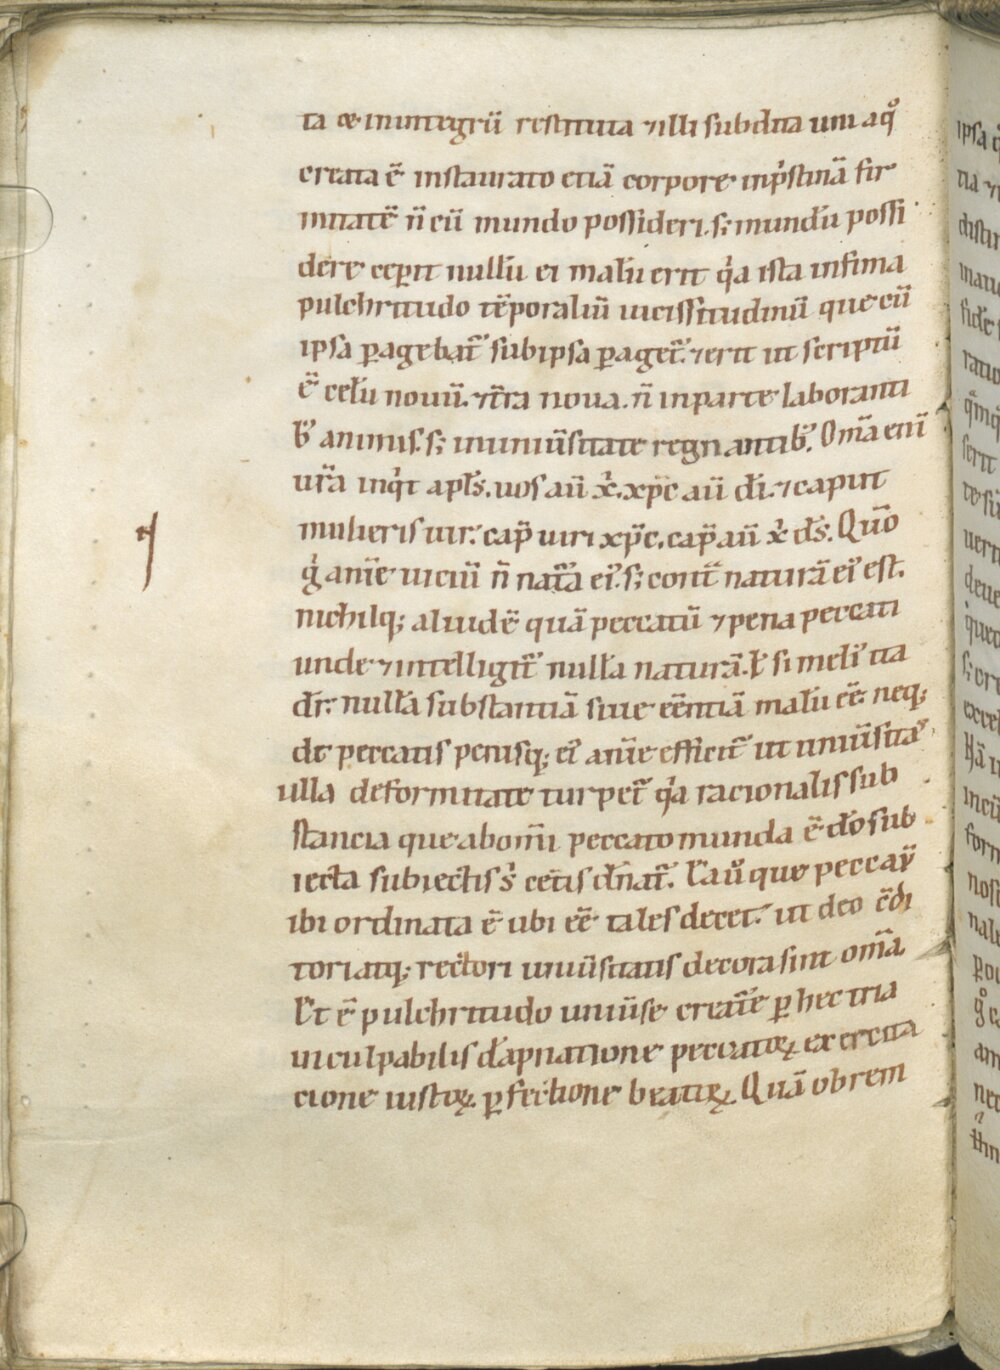 ta & inintegrū restituta ⁊illi subdita uni a qͦ
creata ē instaurato etiā corpore inpͥstinā fir
mitatē n̄ cū mundo possideri. s; mundū possi
dere cep̱it nullū ei malū erit qͥa ista infima
pulchritudo tēporaliū uicissitudinū que cū
ipsa p̱agebat᷑ sub ipsa p̱aget᷑. ⁊erit ut scriptū
ē celū nouū. ⁊t̄ra noua. n̄ inparte laboranti
b᷒ animis. s; inuniūsitate regnantib᷒. Om̄a enī
ur̄a inqͥt apl̄s. uos aū x̄ᷓ. xp̄c aū dī. ⁊caput
mulieris uir. cap̄ uiri xp̄c. cap̄ aū x̄ᷓ ds̄. Quō
gͥ anīe uiciū n̄ nat᷑a ei᷒. s; cont᷑ naturā ei᷒ est.
nichilq; aliud ē quā peccatū ⁊pena peccati
unde ⁊intelligit᷑ nullā naturā. ł si meli᷒ ita
dr̄. nullā substantiā siue eēntiā malū eē. neq;
de peccatis penisq; ei᷒ anīe efficit᷑ ut uniūsita᷒
ulla deformitate turpet᷑ qͥa racionalis sub
stancia que ab om̄i peccato munda ē dō sub
iecta subiectis sͥ cet̄is dn̄at᷑. Ea uͦ que peccau̅
ibi ordinata ē ubi eē tales decet. ut deo c̄di
toriatq; rectori uniūsitatis decora sint om̄a
Et ē pulchritudo uniūse creat᷑e p̱ hec tria
inculpabilis dāpnatione peccatoꝝ. exercita
cione iustoꝝ. p̱fectione beatoꝝ. Quā obrem